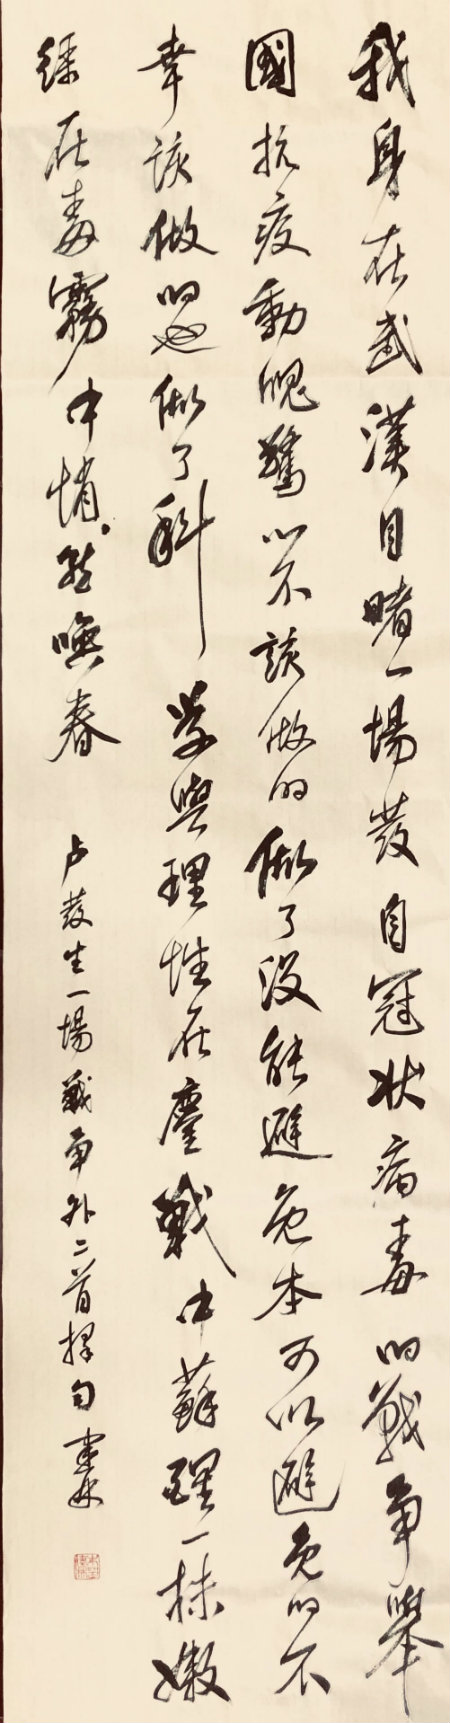 我身在武漢目睹一場發自冠狀病毒的戰爭舉
國抗疫動魄驚心不該做的做了沒能避免本可以避免的不
幸該做的也做了科學與理性在鏖戰中蘇醒一株嫩
綠在毒霧中悄然喚春
卢發生一場戰爭外二首擇句